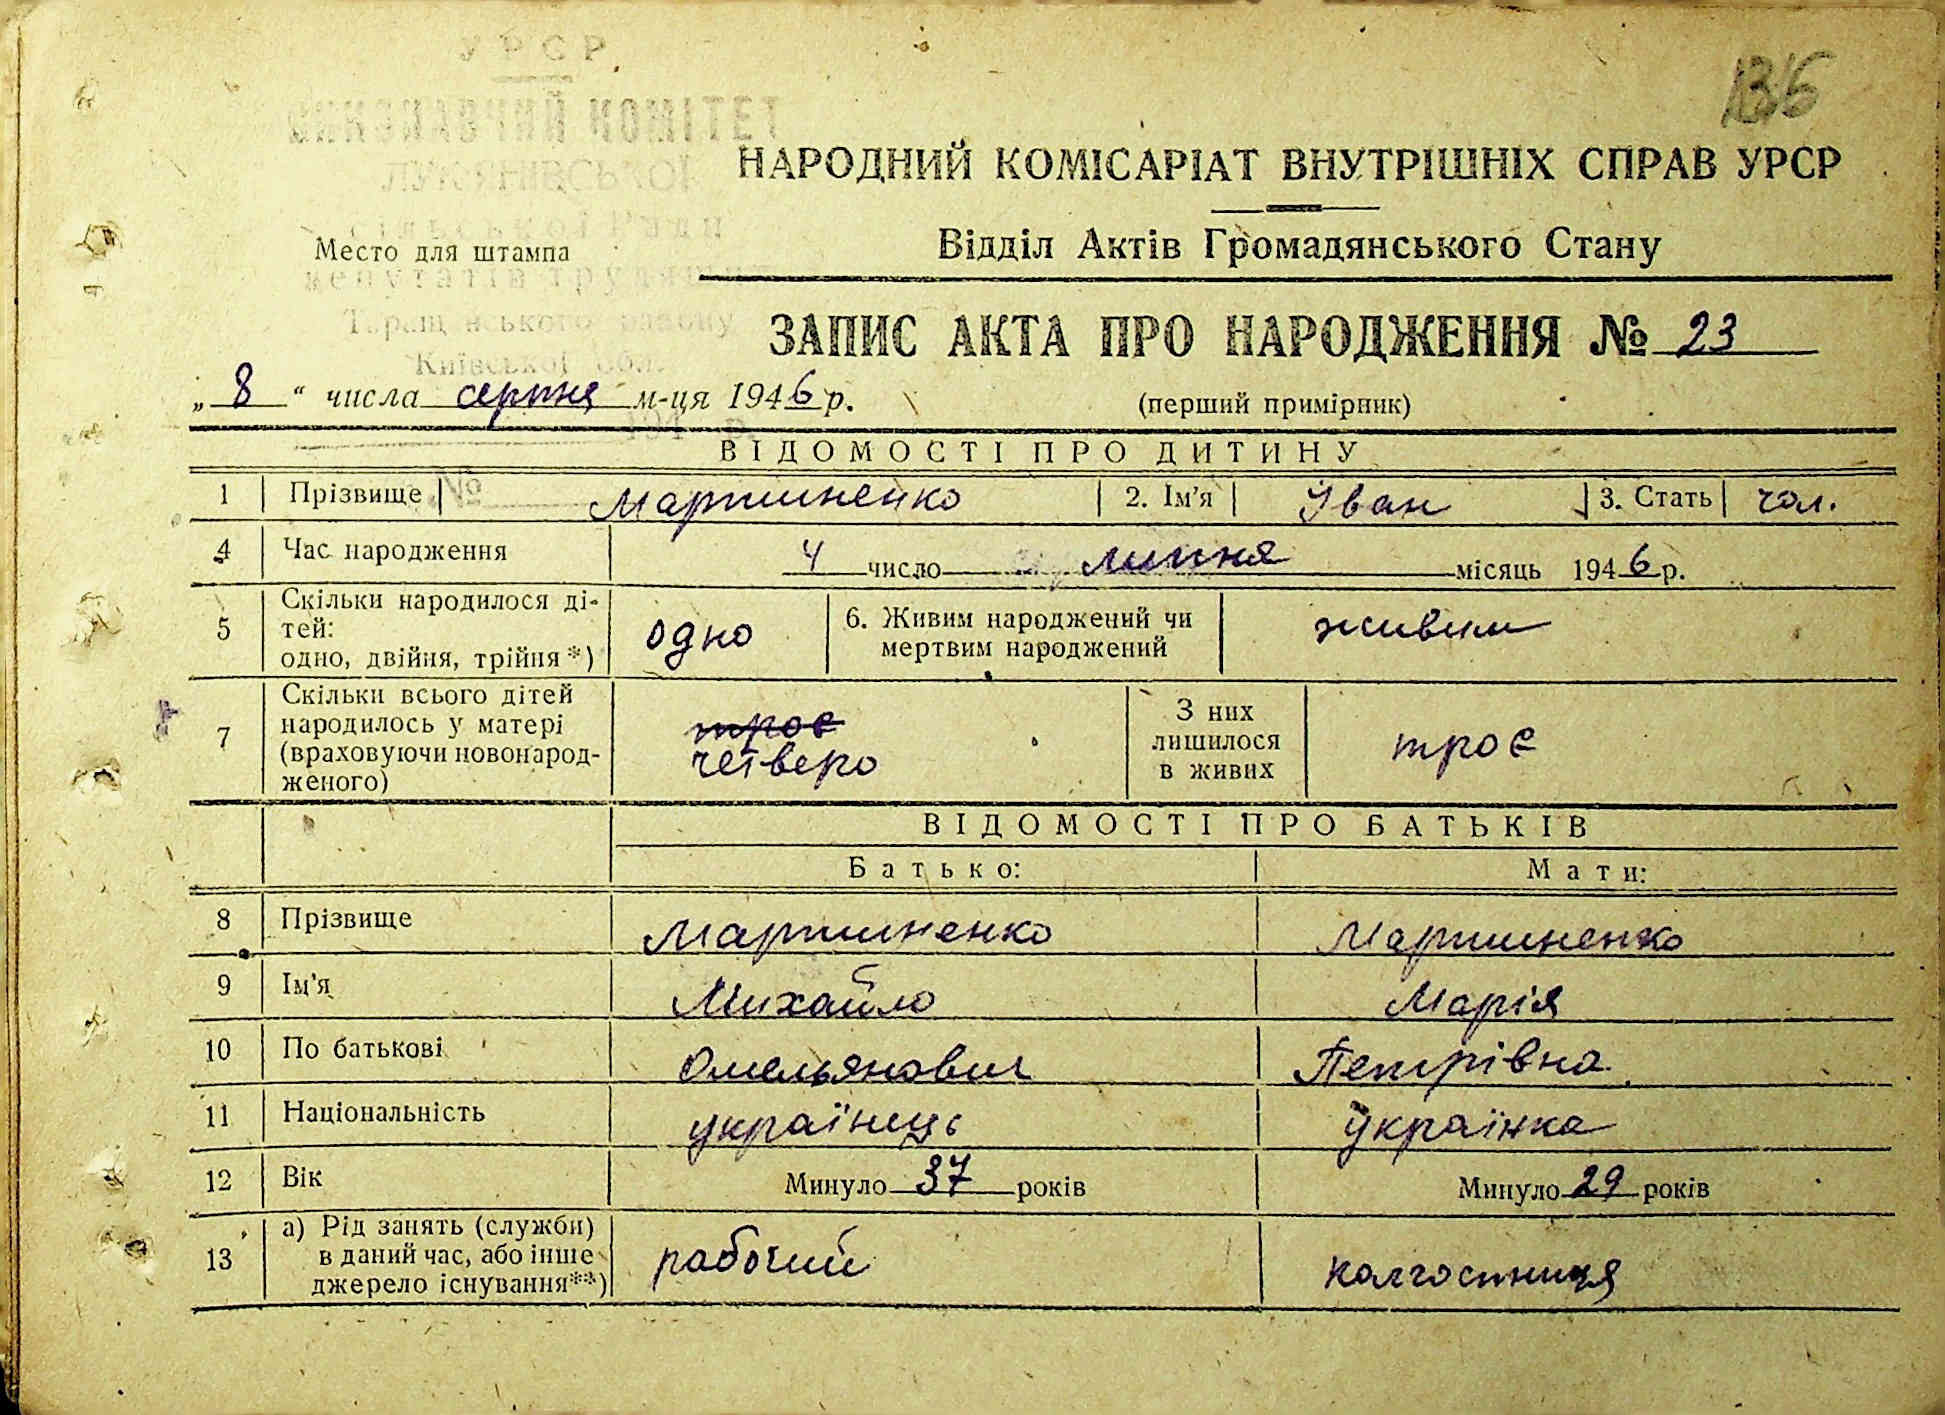 136
УРСР
ВИКОНАВЧИЙ КОМІТЕТ
ЛУК'ЯНІВСЬКОЇ
сільської Ради
депутатів трудящих
Таращанського району
Київської обл.
194 р.
№
НАРОДНИЙ КОМІСАРІАТ ВНУТРІШНІХ СПРАВ УРСР
Место для штампа
Відділ Актів Громадянського Стану
ЗАПИС АКТА ПРО НАРОДЖЕННЯ № 23
„ 8 “ числа серпня м-ця 1946 р.
(перший примірник)
ВІДОМОСТІ ПРО ДИТИНУ
1 Прізвище Мартиненко 2. Ім'я Іван 3. Стать чол.
4 Час народження 4 число липня місяць 1946 р.
5 Скільки народилося ді-
тей:
одно, двійня, трійня*) одно 6. Живим народжений чи
мертвим народжений живим
7 Скільки всього дітей
народилось у матері
(враховуючи новонарод-
женого) троє
четверо
З них
лишилося
в живих троє
ВІДОМОСТІ ПРО БАТЬКІВ
Батько: Мати:
8 Прізвище Мартиненко Мартиненко
9 Ім'я Михайло Марія
10 По батькові Омельянович Петрівна
11 Національність українець українка
12 Вік Минуло 37 років Минуло 29 років
13 а) Рід занять (служби)
в даний час, або інше
джерело існування**) рабочий колгоспниця